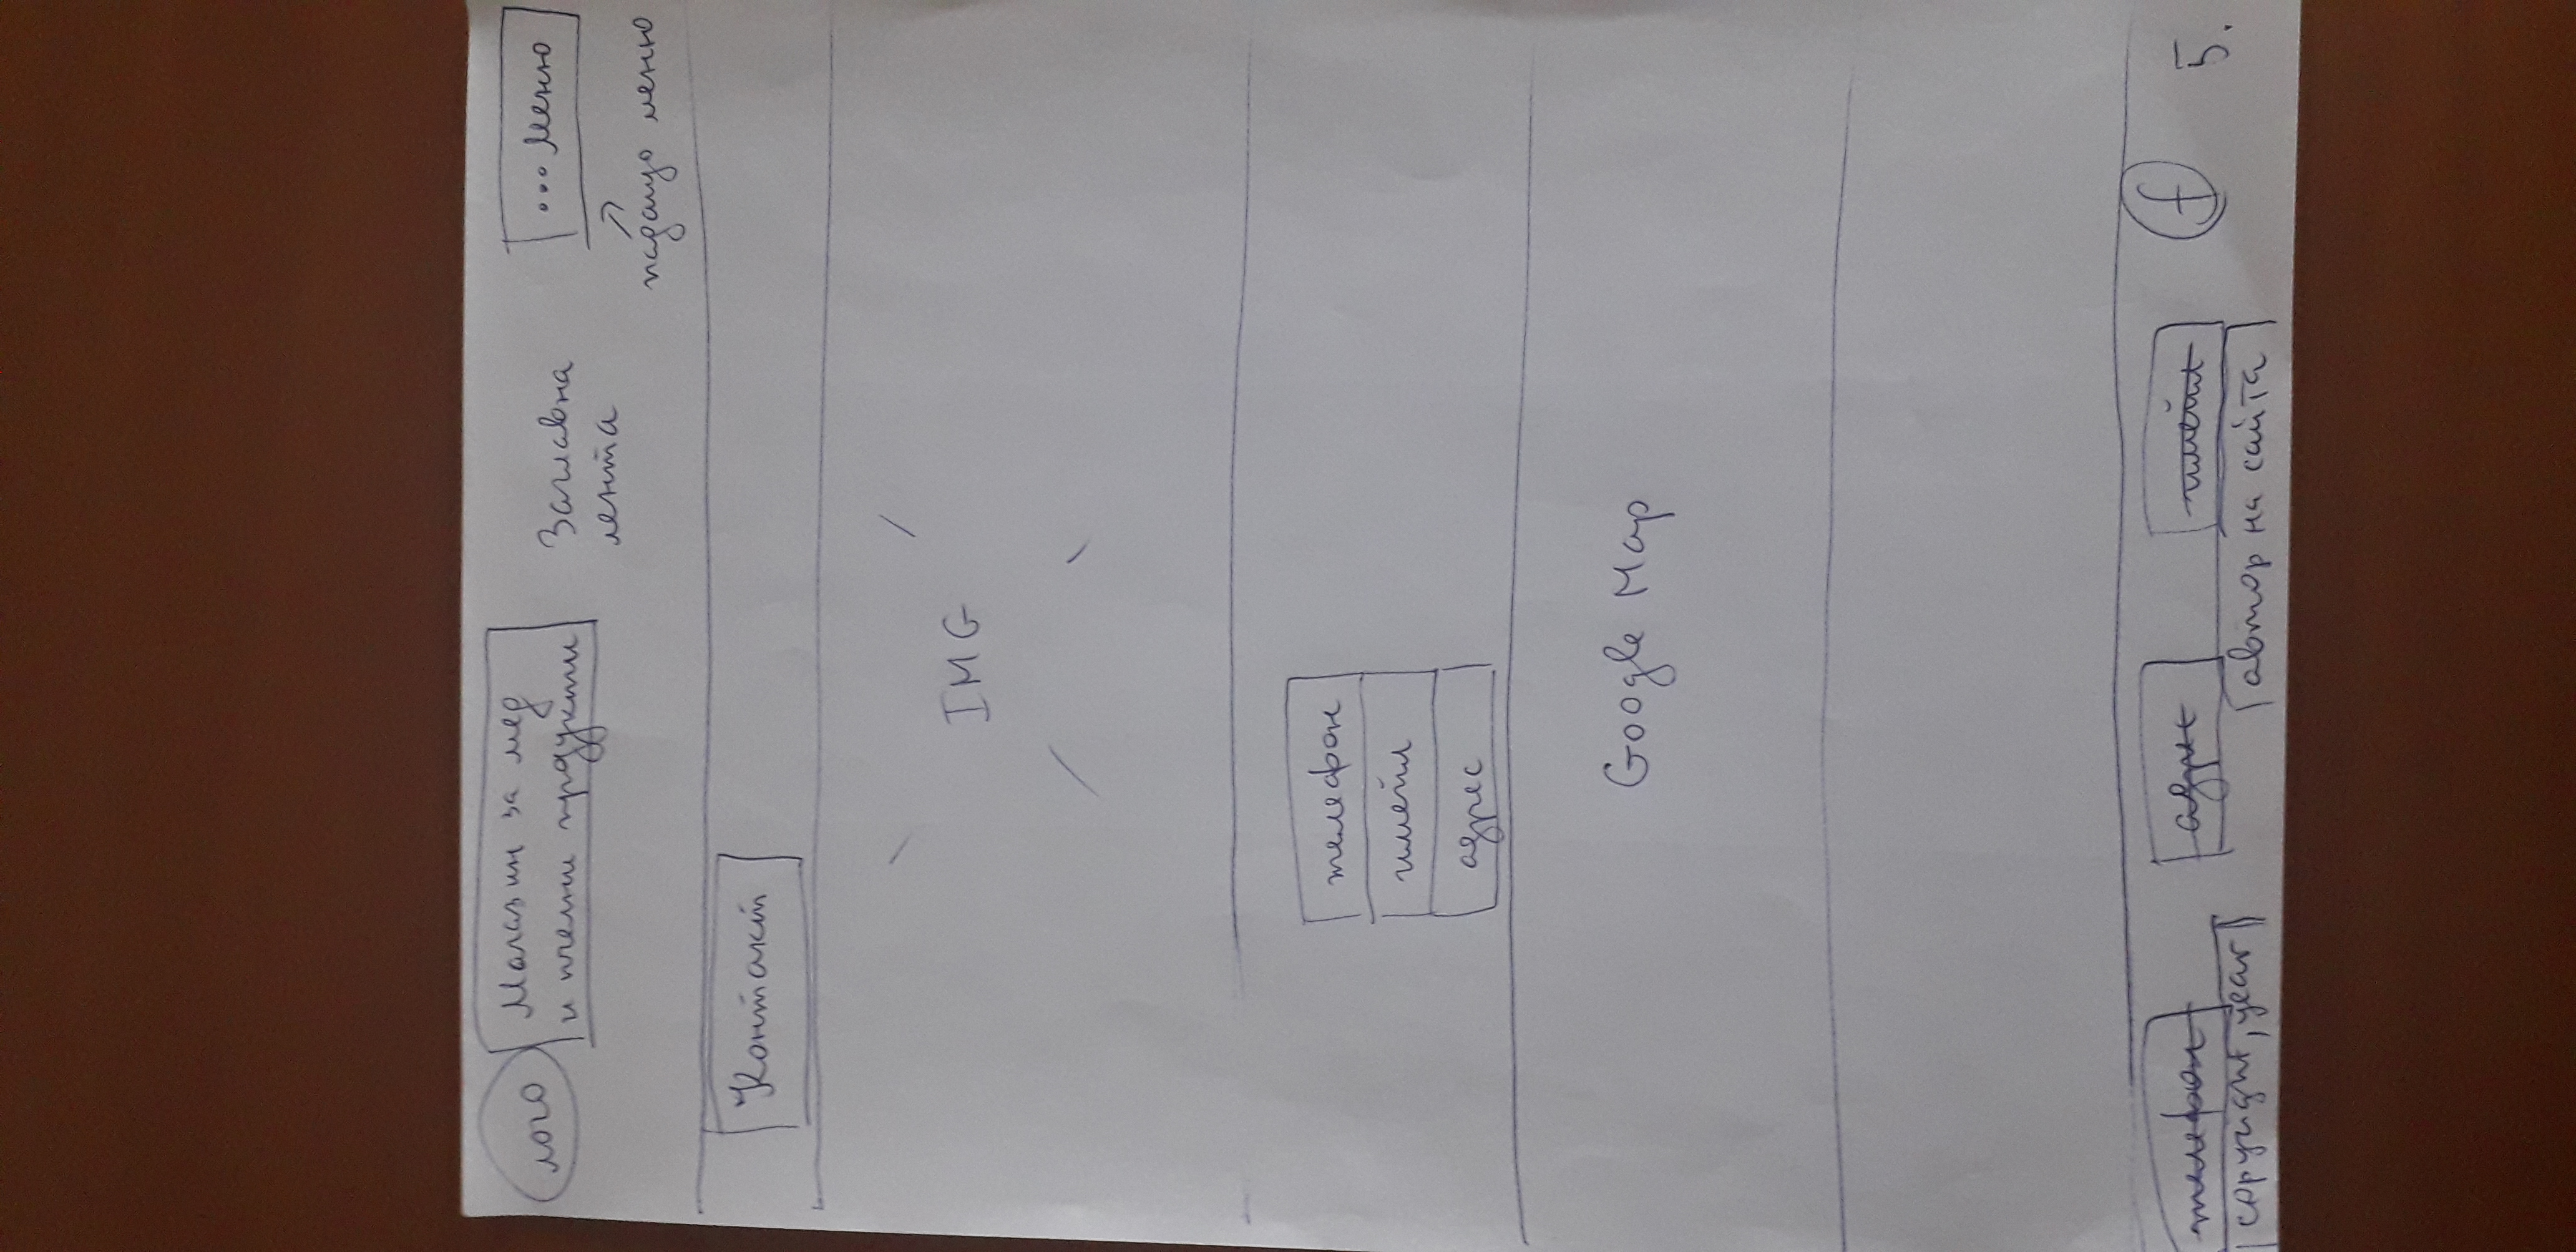 лого
Магазин за мед
и пчелни продукти
Заглавна
лента
... Меню
падащо меню
Контакт
IMG
телефон
имейл
адрес
Google Map
телефон
адрес
имейл
f
5.
copyright, year
автор на сайта